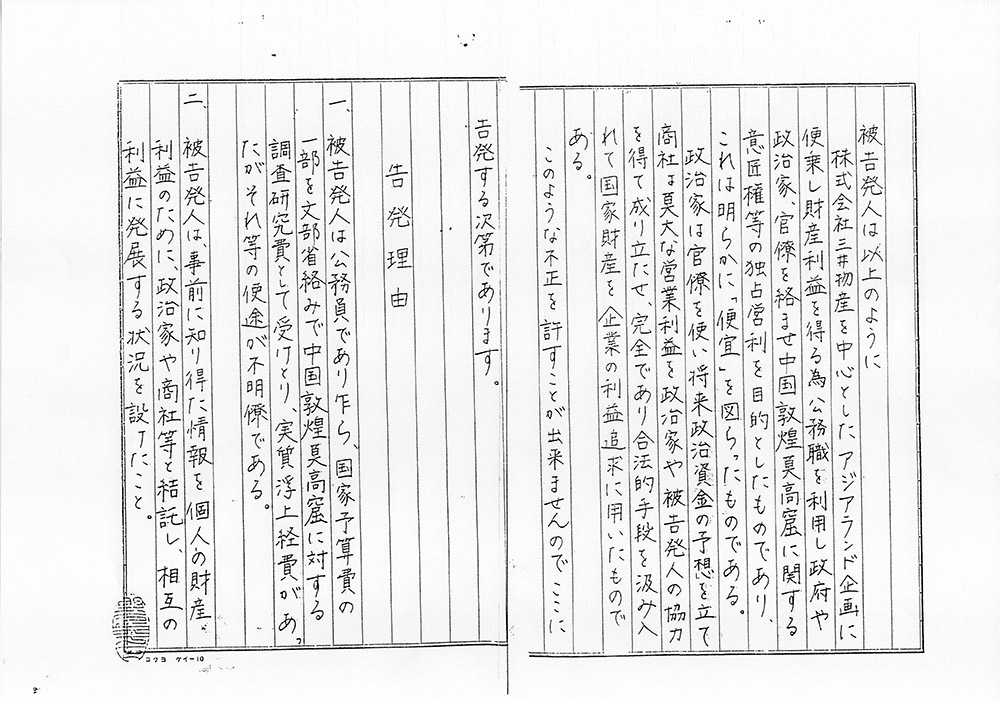 被告発人は以上のように
株式会社三井物産を中心としたアジアランド企画に
便乗し財産利益を得る為公務職を利用し政府や
政治家、官僚を絡ませ中国敦煌莫高窟に関する
意匠権等の独占営利を目的としたものであり、
これは明らかに「便宜」を図らったものである。
政治家は官僚を使い将来政治資金の予想を立て
商社は莫大な営業利益を政治家や被告発人の協力
を得て成り立たせ、完全であり合法的手段を汲み入
れて国家財産を企業の利益追求に用いたもので
ある。
このような不正を許すことが出来ませんのでここに
告発する次第であります。
告発理由
一、被告発人は公務員であり乍ら、国家予算費の
一部を文部省絡みで中国敦煌莫高窟に対する
調査研究費として受けとり、実質浮上経費があっ
たがそれ等の使途が不明僚である。
二、被告発人は、事前に知り得た情報を個人の財産
利益のために、政治家や商社等と結託し、相互の
利益に発展する状況を設けたこと。
コクヨ ケイー10
2